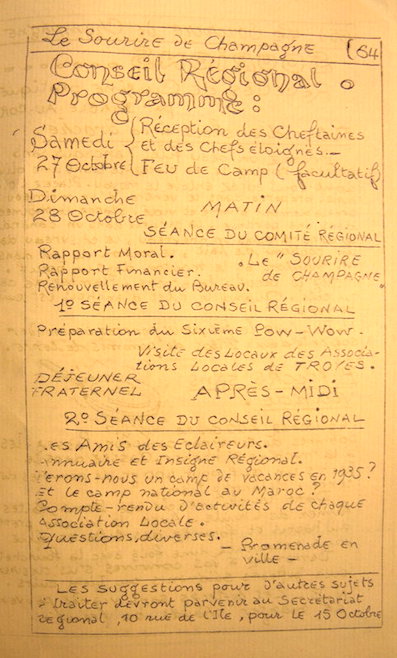 Le Sourire de Champagne (64)
Conseil Régional.
Programme:
Samedi
27 Octobre
Réception des Cheftaines
et des Chefs éloignés._
Feu de Camp (facultatif)
Dimanche
28 Octobre
MATIN
SÉANCE DU COMITÉ RÉGIONAL
Rapport Moral.
Rapport Financier.
Renouvellement du Bureau.
. Le "SOURIRE
de CHAMPAGNE"
1º SÉANCE DU CONSEIL RÉGIONAL
Préparation du Sixième Pow-Wow.
Visite des Locaux des Associa-
tions Locales de TROYES.
DÉJEUNER
FRATERNEL
APRÈS-MIDI
2º SÉANCE DU CONSEIL RÉGIONAL
Les Amis des Eclaireurs.
Annuaire et Insigne Régional.
Ferons-nous un camp de vacances en 1935?
Et le camp national au Maroc?
Compte-rendu d'activités de chaque
Association Locale.
Questions, diverses.
- Promenade en
ville -
Les suggestions pour d'autres sujets
à traiter devront parvenir au Secrétariat
Régional, 10 rue de l'Ile, pour le 15 Octobre